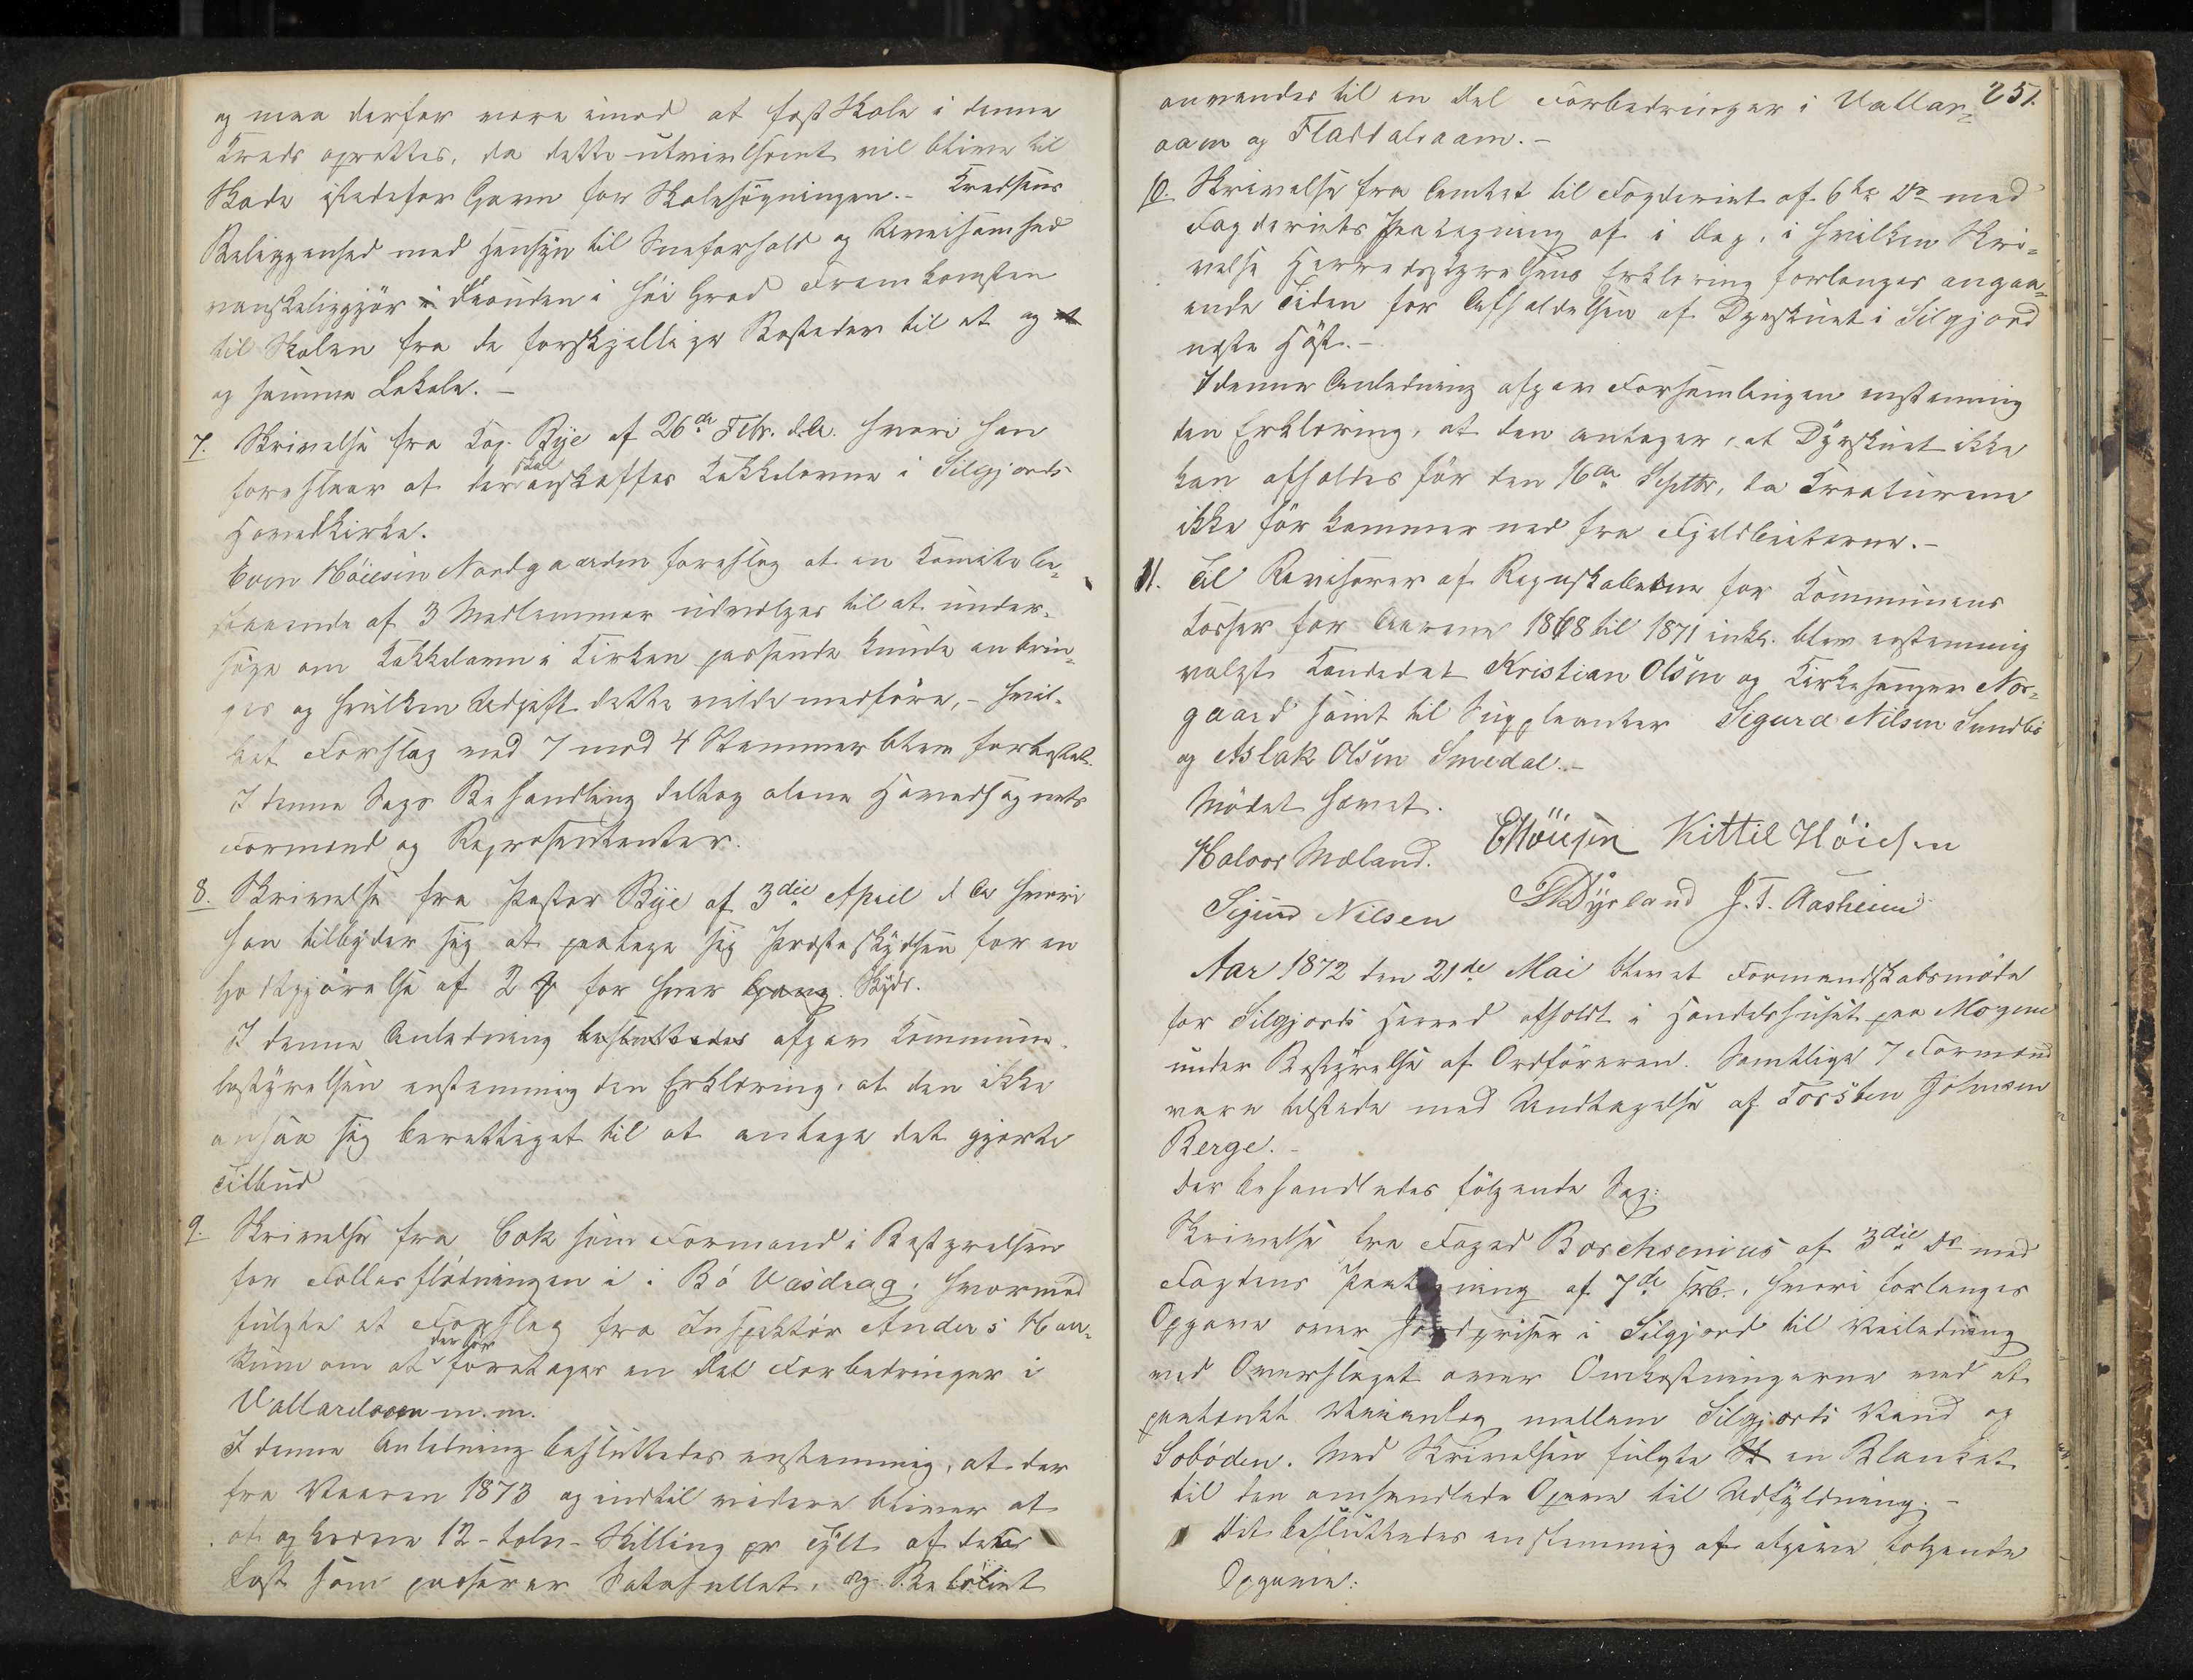 og maa derfor være imod at fast Skole i denne
Kreds oprettes, da dette utvivlsomt vil blive til
Skade istedefor Gavn for Skolesøgningen.- Kredsens
Beliggenhed med Hensyn til Sneforhold og Uveisomhed
vanskeliggjør i desuden i høi Grad Fremkomsten
til Skolen fra de forskjellige Bosteder til et og et
og samme Lokale. -
7. Skrivelse fra Kap. Bye af 26de Febr. d.A. hvori han
foreslaar at der skal anskaffes Kakkelovne i Silgjords
Hovedkirke.
Even Höiesen Nordgaarden foreslog at en Komite be-
staaende af 3 Medlemmer udvælges til at under-
søge om Kakkelovn i Kirken passende kunde anbrin-
ges og hvilken Udgift dette vilde medføre, - hvil-
ket Forslag med 7 mod 4 Stemmer blev forkastet.
I denne Sags Behandling deltog alene Hovedsognets
Formænd og Repræsentanter.
8. Skrivelse fra Pastor Bye af 3die April d A hvori
han tilbyder sig at paatage sig Presteskydsen for en
Godtgjørelse af 2 for hver Gang. Skyds.
I denne Anledning besluttedes afgav Kommune-
bestyrelsen enstemmig den Erklæring, at den ikke
ansaa sig berettiget til at antage det gjorte
Tilbud
9. Skrivelse fra Cok som Formand i Bestyrelsen
for Fellesflødningen i i Bö Vasdrag, hvormed
fulgte et Forslag fra Inspektör Anders Hau-
kum om at der bør foretages en Del Forbedringer i
Vallaraaen m.m.
I denne Anledning besluttedes enstemmig, at der
fra Vaaren 1873 og indtil videre bliver at
at opkræve 12 - tolv - Skilling pr Tylt af det
Last som passerer Vatnhullet, og Belöbet
251.
anvendes til en Del Forbedringer i Vallar-
aaen og Flatdalsaaen. -
10. Skrivelse fra Amtet til Fogderiet af 6te ds med
Fogderiets Paategning af i Dag, i hvilken Skri-
velse Herredsstyrelsens Erklæring forlanges angaa-
ende Tiden for Afholdelsen af Dyrskuet i Silgjord
næste Høst. -
I denne Anledning afgav Forsamlingen enstemmig
den Erklæring, at den antager, at Dyrskuet ikke
kan afholdes før den 16de Septbr, da Kreaturene
ikke før kommer ned fra Fjeldbeiterne. -
11. Til Revisorer af Regnskaberne for Kommunens
Kasser for Aarene 1868 til 1871 inkl. blev enstemmig
valgte Kandidat Kristian Olsen og Kirkesanger Nor-
gaard samt til Suppleanter Sigurd Nilsen Sundbö
og Aslak Olsen Smedal. -
Mödet hævet.
Halvor Mæland. EHöiesen Kittil Höiesen
Sigurd Nilsen Dyrland J. T. Aasheim
Aar 1872 den 21de Mai blev et Formandskabsmöde
for Silgjords Herred afholdt i Handelshuset paa Mogene
under Bestyrelse af Ordföreren. Samtlige 7 Formænd
vare tilstede med Undtagelse af Torsten Johnsen
Berge. -
Der behandledes følgende Sag:
Skrivelse fra Foged Borchsenius af 3die ds med
Fogdens Paategning af 7de s., hvori forlanges
Opgave over Jordpriser i Silgjord til Veiledning
ved Overslaget over Omkostningerne ved et
paatænkt Veianlæg mellem Silgjords Vand og
Sobøden. Med Skrivelsen fulgte en Blanket
til den omhandlede Opgave til Udfyldning. -
Det besluttedes enstemmig at afgive følgende
Opgave: